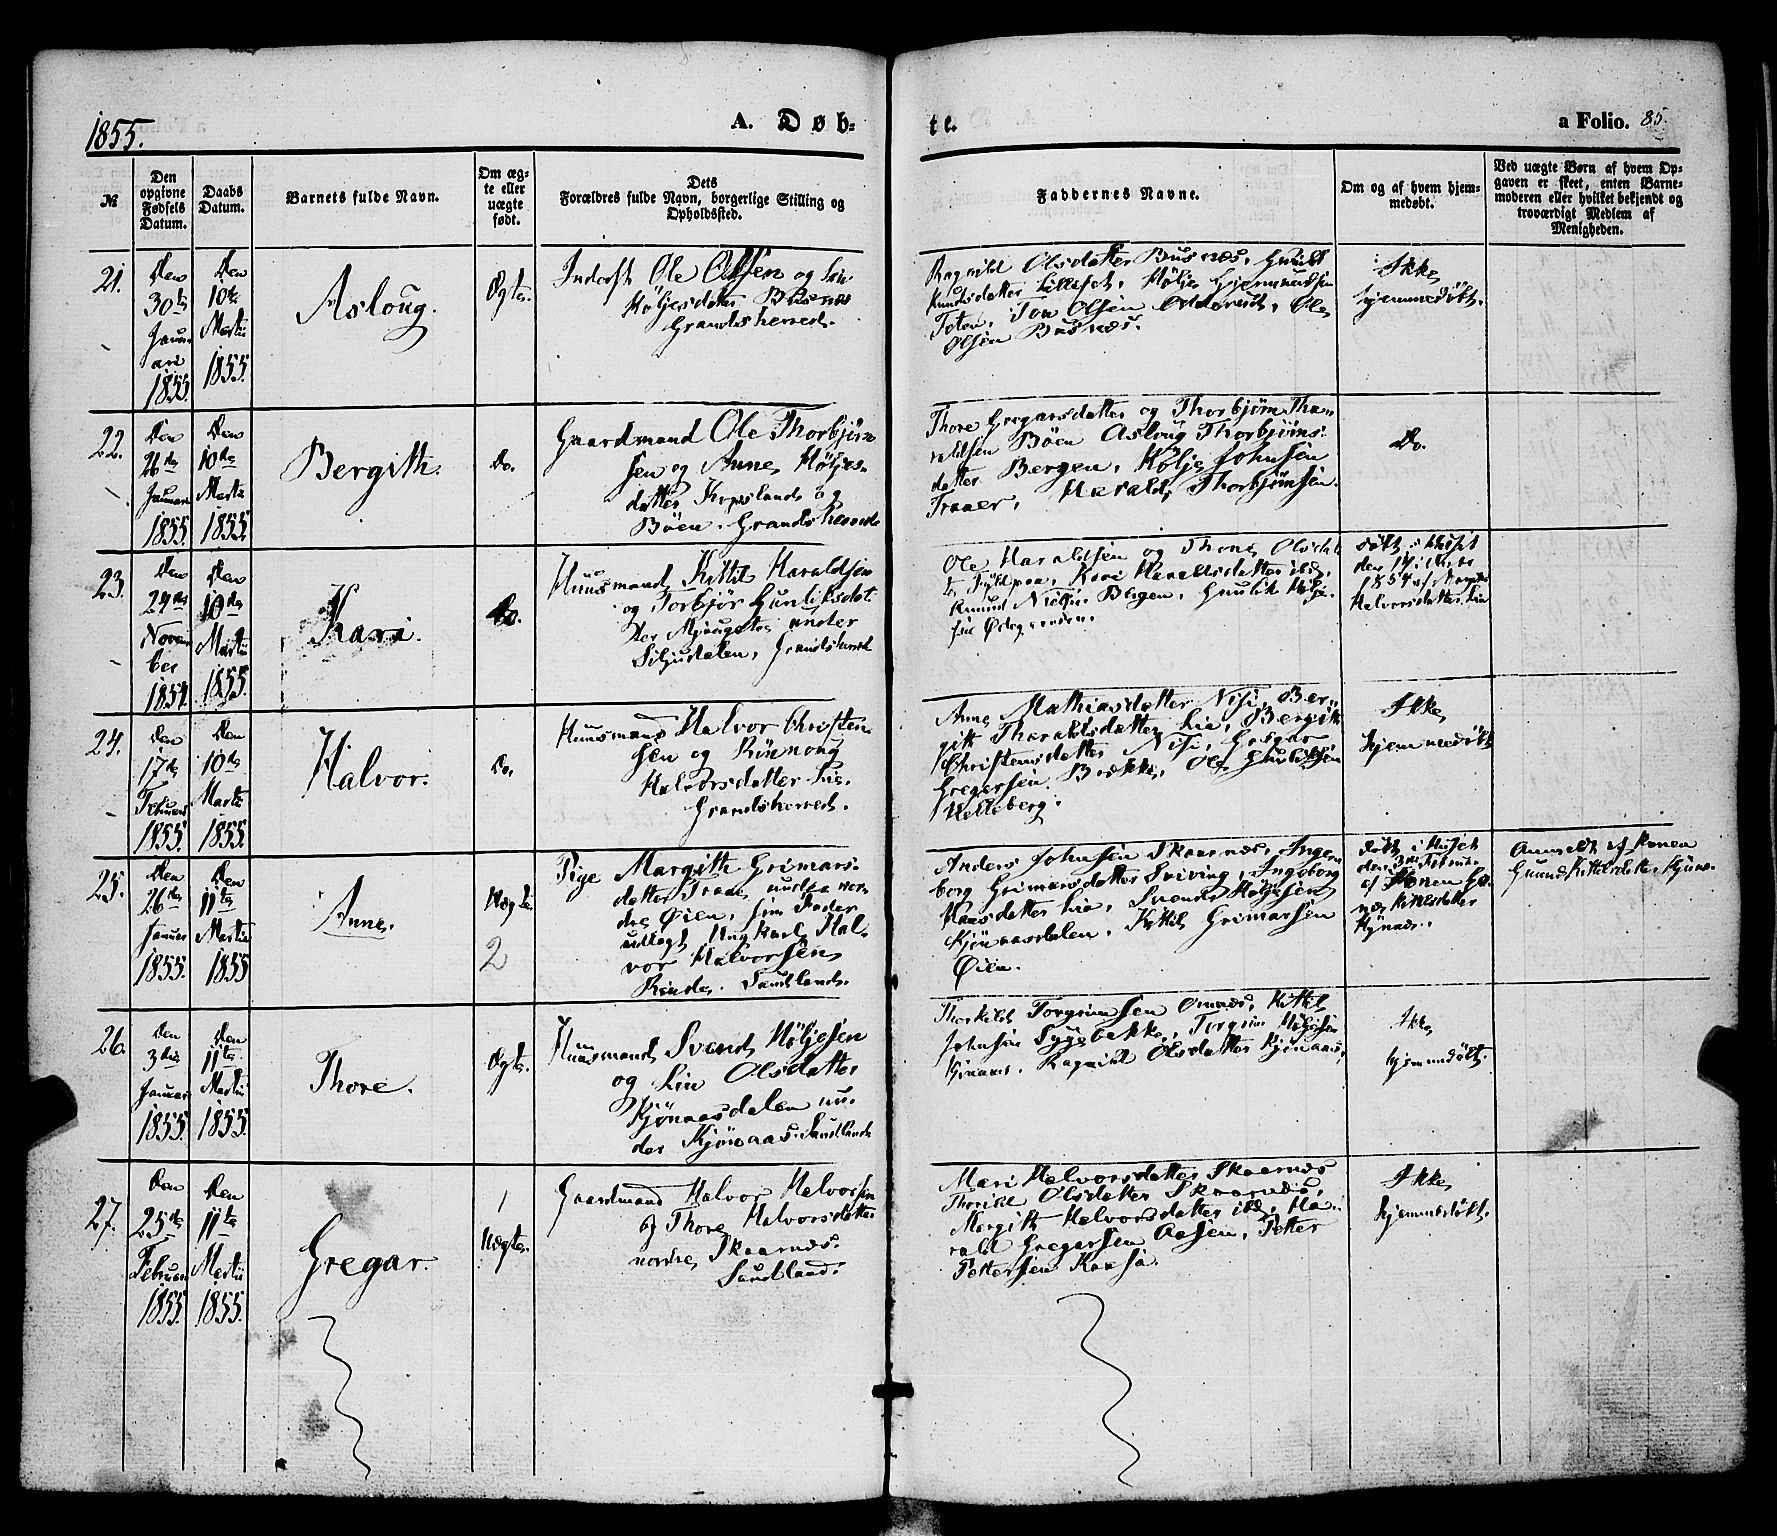 1855.
A. Døb-
te.
a Folio. 85.
№
Den opgivne Fødsels Datum.
Daabs Datum.
Barnets fulde Navn.
Om ægte eller uægte født.
Dets
Forældres fulde Navn, borgerlige Stilling og
Opholdssted.
Faddernes Navne.
Om og af hvem hjem-
medøbt.
Ved uægte Børn af hvem Op-
gaven er skeet, enten Barne-
moderen eller hvilket bekjendt og
troværdigt Medlem af
Menigheden.
21.
Den
30te
Janu
ari
1855.
Den
10de
Martii
1855.
Asloug.
Ægte.
Inderst Ole Olsen og Liv
Höljesdatter Busnæs
Grandsherred.
Ragnild Olsdatter Busnæs, Gunild
Knudsdatter, Höljes
Toten, Tow Olsen, Ole
Olsen Busnæs.
Ikke
hjemmedöbt.
22.
Den
26de
Januari
1855.
Den
10de
Martii
1855.
Bergith.
Do.
Gaardmand Ole Thorbjörn
sen og Anne Höljes-
datter og
Böen. Grandsherred
Thore Gregarsdatter og Thorbjörn Tha-
raldsen Böen Asloug Thorbjörns-
datter Bergen, Hölje Johnsen
Traaer, Harald Thorbjörnsen.
Do.
23.
Den
24de
Novem
ber
1854.
Den
10de
Martii
1855.
Kari.
Do.
Huusmand Kittil Haraldsen
og Torbjör Gunliksdat
ter under
Siljudalen, Grandsherred
Ole Haraldsen og Thone Olsdat
Kari Haraldsdatter ibd,
Amund Bergen, Gunlik Hölje
sen Ödegaarden.
döbt i Huset
den
1854 af
Halvorsdatter Lia
24.
Den
17de
Februari
1855.
Den
10de
Martii
1855.
Halvor.
Do.
Huusmand Halvor Christen
sen og Rönnoug
Halvorsdatter Lie.
Grandsherred.
Anne Mathiasdatter Nisi, Ber-
gith Tharaldsdatter Lia, Bergith
Christensdatter Nisi, Gregar
Gregersen Bække, Ole Gunliksen
Helleberg.
Ikke
hjemmedöbt
25.
Den
26de
Januar
1855.
Den
11te
Martii
1855
Anne.
Uægte.
2
Pige Margith Grimars-
datter Traae, under nor-
dre Öien, som Fader
udlagt Ungkarl Hal-
vor Halvorsen
Rinde. Saudland.
Anders Johnsen Skaarnæs, Inge-
borg Grimarsdatter Sviving, Ingeborg
Haasdatter Lia, Svend Höljesen
Kjönaasdalen, Kittil Grimarsen
Öien.
döbt i Huset
den
af Konen
Kittilsdatter
Anmeldt af Konen
Gunild Kittilsdatter
26.
Den
3die
Januar
1855.
Den
11te
Martii
1855.
Thore.
Ægte.
Huusmand Svend Höljesen
og Liv Olsdatter
Kjönaasdalen un-
der Kjönaas. Saudland
Thorkild Torgrimsen Omnæs, Kittil
Johnsen Syggebække, Torgrim Höljesen
Kjönaas. Ragnild Olsdatter Kjönaas,
Ikke
hjemmedöbt.
27.
Den
25de
Februar
1855.
Den
11te
Martii
1855.
Gregar.
1
Uægte.
Gaardmand Halvor Halvorsen
og Thore Halvorsdatter
nordre Skaarnæs.
Saudland.
Mari Halvorsdatter Skaarnæs
Thorild Olsdatter Skaarnæs,
Margith Halvorsdatter ibd, Ha-
rald Gregersen Aasen, Petter
Pettersen Kaasa.
Ikke
hjemmedöbt.